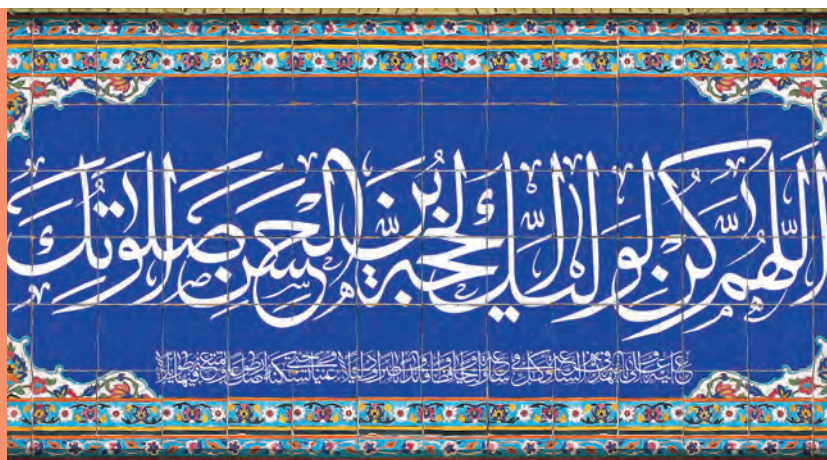 اَللّهُمَّ كُنْ لِوَلِيِّكَ الْحُجَّةِ بْنِ الْحَسَنِ صَلَواتُكَ
عليه وعلى آبائه في هذه الساعة وفي كل ساعة وليا وحافظا وقائدا وناصرا ودليلا وعينا حتى تسكنه ارضك طوعا وتمتعه فيها طويلا